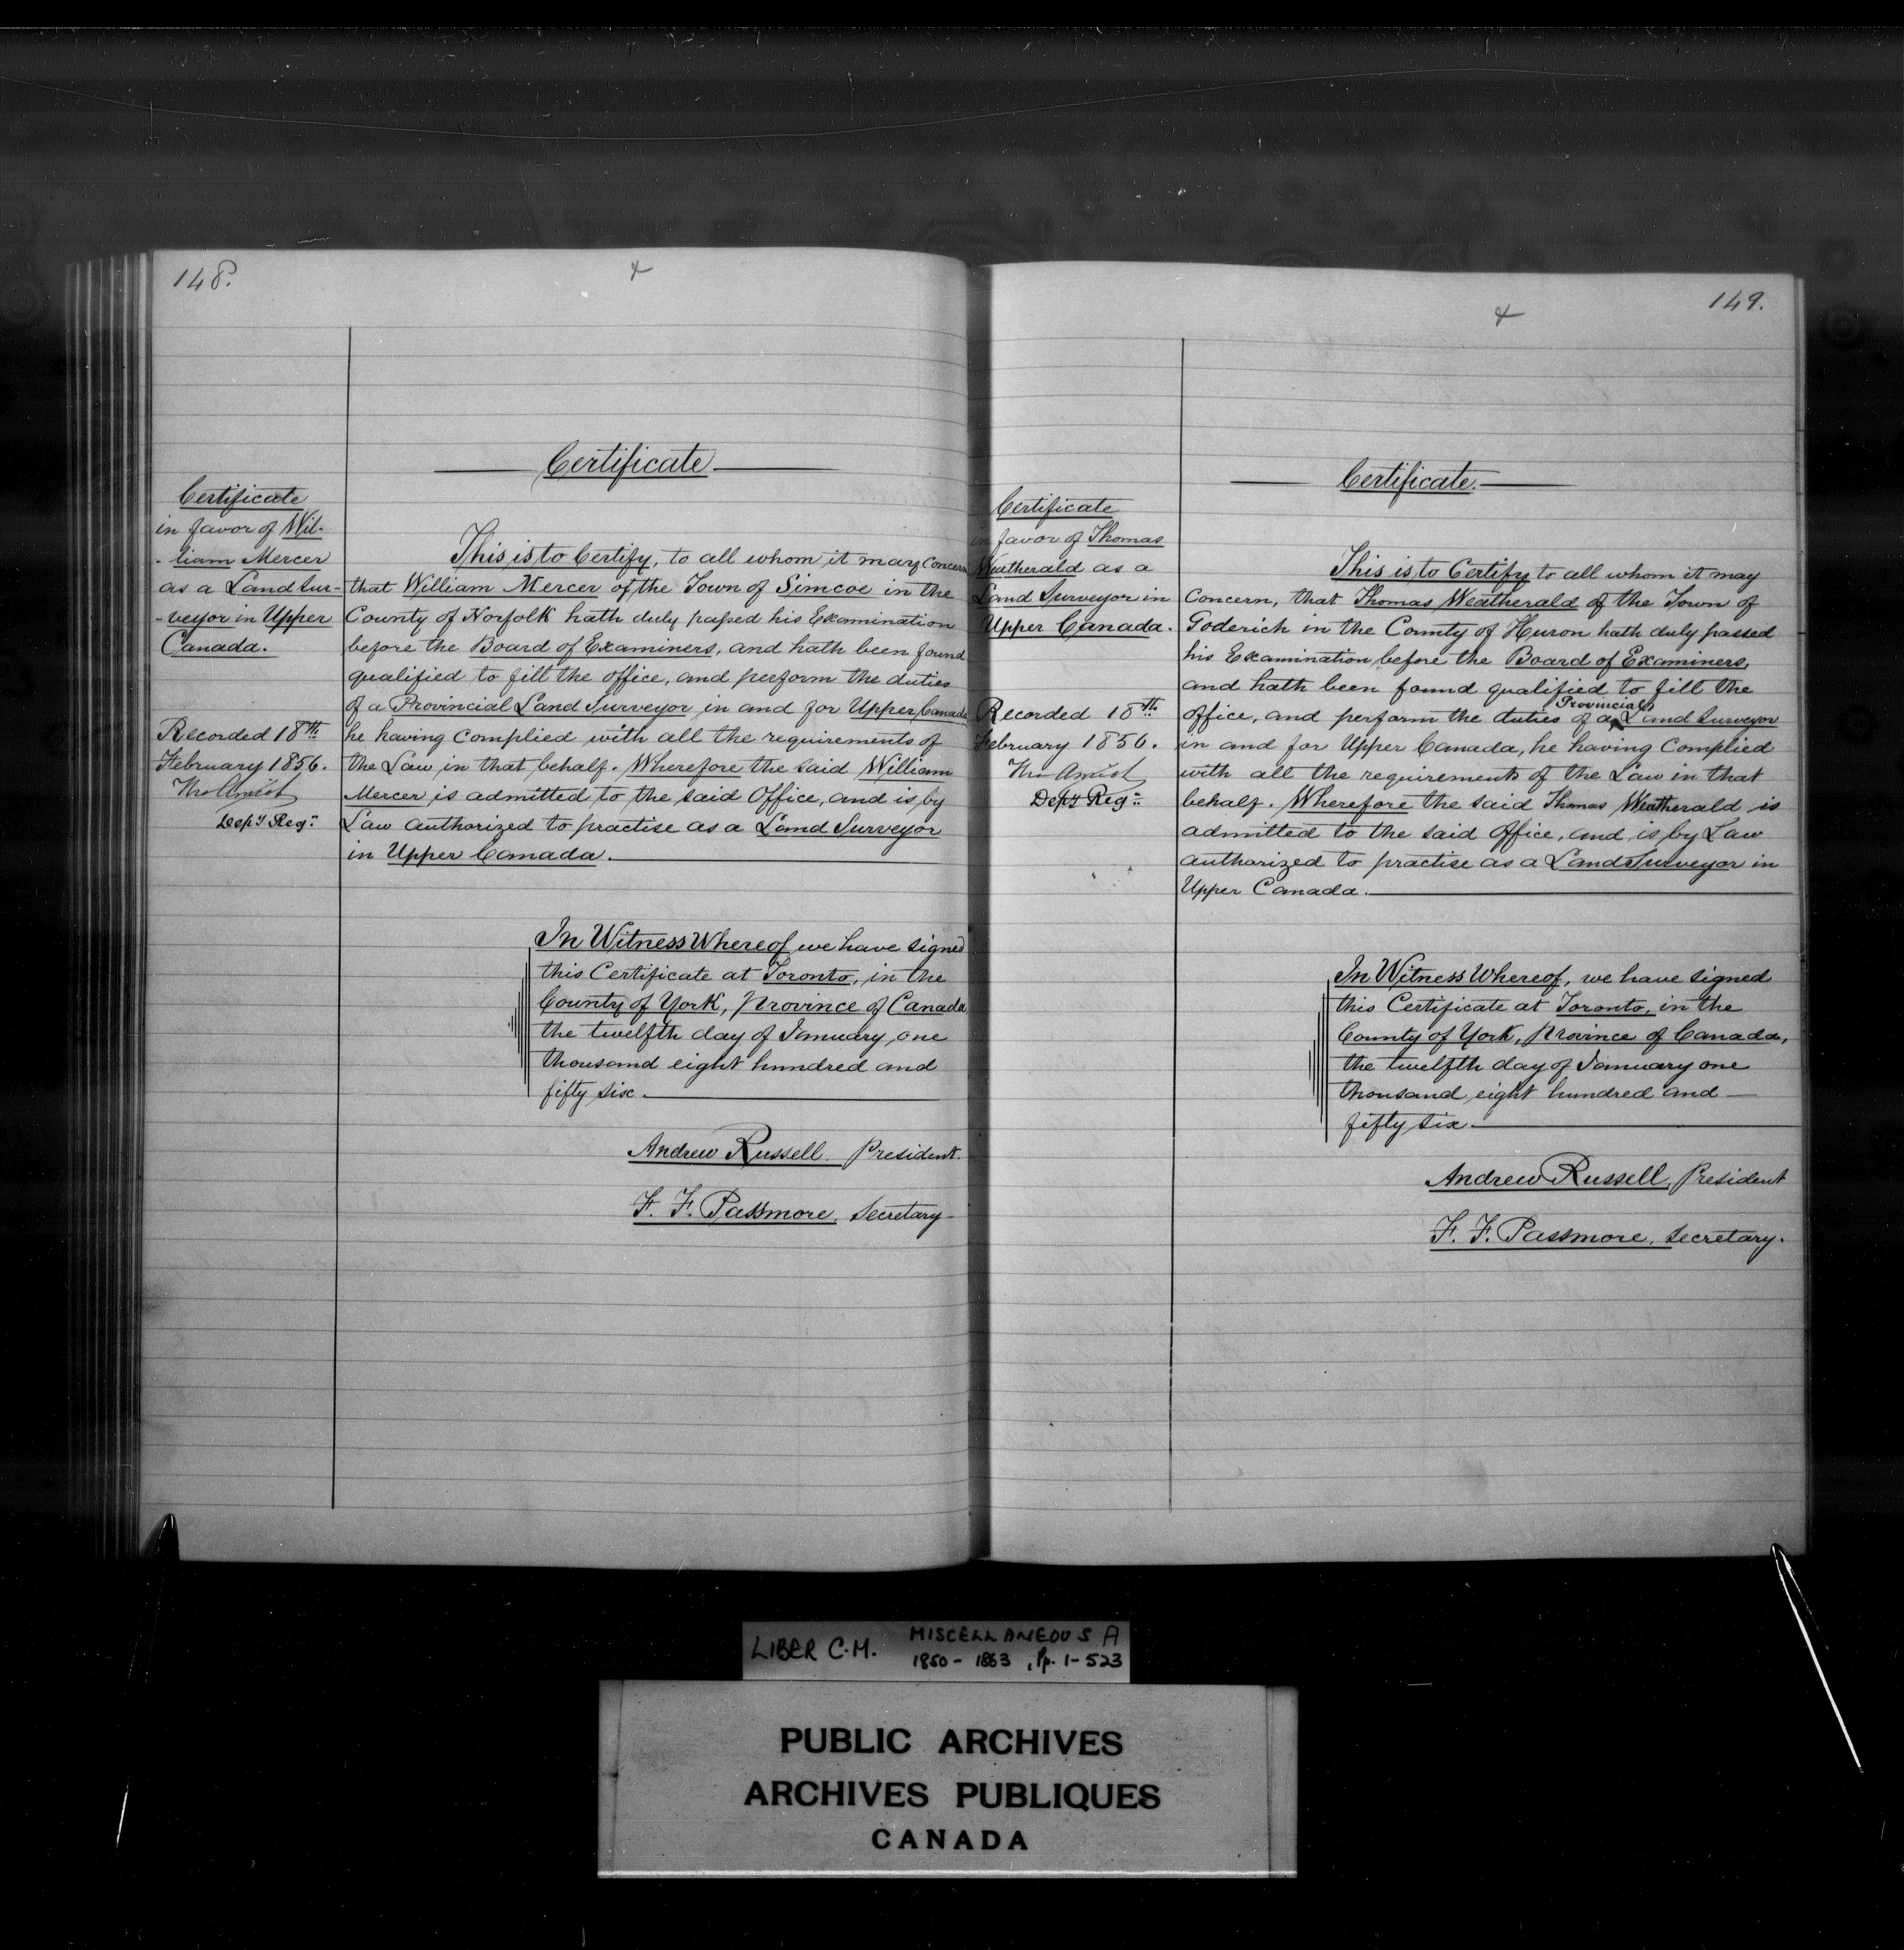 148.
Certificate
Certificate
in favor of Wil-
-liam Mercer
as a Land Sur-
-veyor in Upper
Canada.
Recorded 18th
February 1856.
Thos Amiot
Depy Regr
This is to Certify, to all whom it may concern
that William Mercer of the Town of Simcoe in the
County of Norfolk hath duly passed his Examination
before the Board of Examiners, and hath been found
qualified to fill the office, and perform the duties
of a Provincial Land Surveyor in and for Upper Canada
he having complied with all the requirements of
the Law in that behalf. Wherefore the said William
Mercer is admitted to the said Office, and is by
Law authorized to practise as a Land Surveyor
in Upper Canada.
In Witness Whereof we have signed
this Certificate at Toronto, in the
County of York, Province of Canada
the twelfth day of January, one
thousand eight hundred and
fifty six.
Andrew Russell President.
F. F. Passmore, Secretary
149.
Certificate.
Certificate
in favor of Thomas
Weatherald as a
Land Surveyor in
Upper Canada.
Recorded 18th
February 1856.
Thos Amiot
Depy Regr
This is to Certify to all whom it may
Concern, that Thomas Weatherald of the Town of
Goderich in the County of Huron hath duly passed
his Examination before the Board of Examiners,
and hath been found qualified to fill the
office, and perform the duties of a Provincial Land Surveyor
in and for Upper Canada, he having complied
with all the requirements of the Law in that
behalf. Wherefore the said Thomas Weatherald is
admitted to the said Office, and is by Law
authorized to practise as a Land Surveyor in
Upper Canada.
In Witness Whereof, we have signed
this Certificate at Toronto, in the
County of York, Province of Canada,
the twelfth day of January one
thousand eight hundred and
fifty six.
Andrew Russell, President
F. F. Passmore, Secretary.
LIBER C.M. MISCELLANEOUS A
1850-1863, Pp. 1-523
PUBLIC ARCHIVES
ARCHIVES PUBLIQUES
CANADA